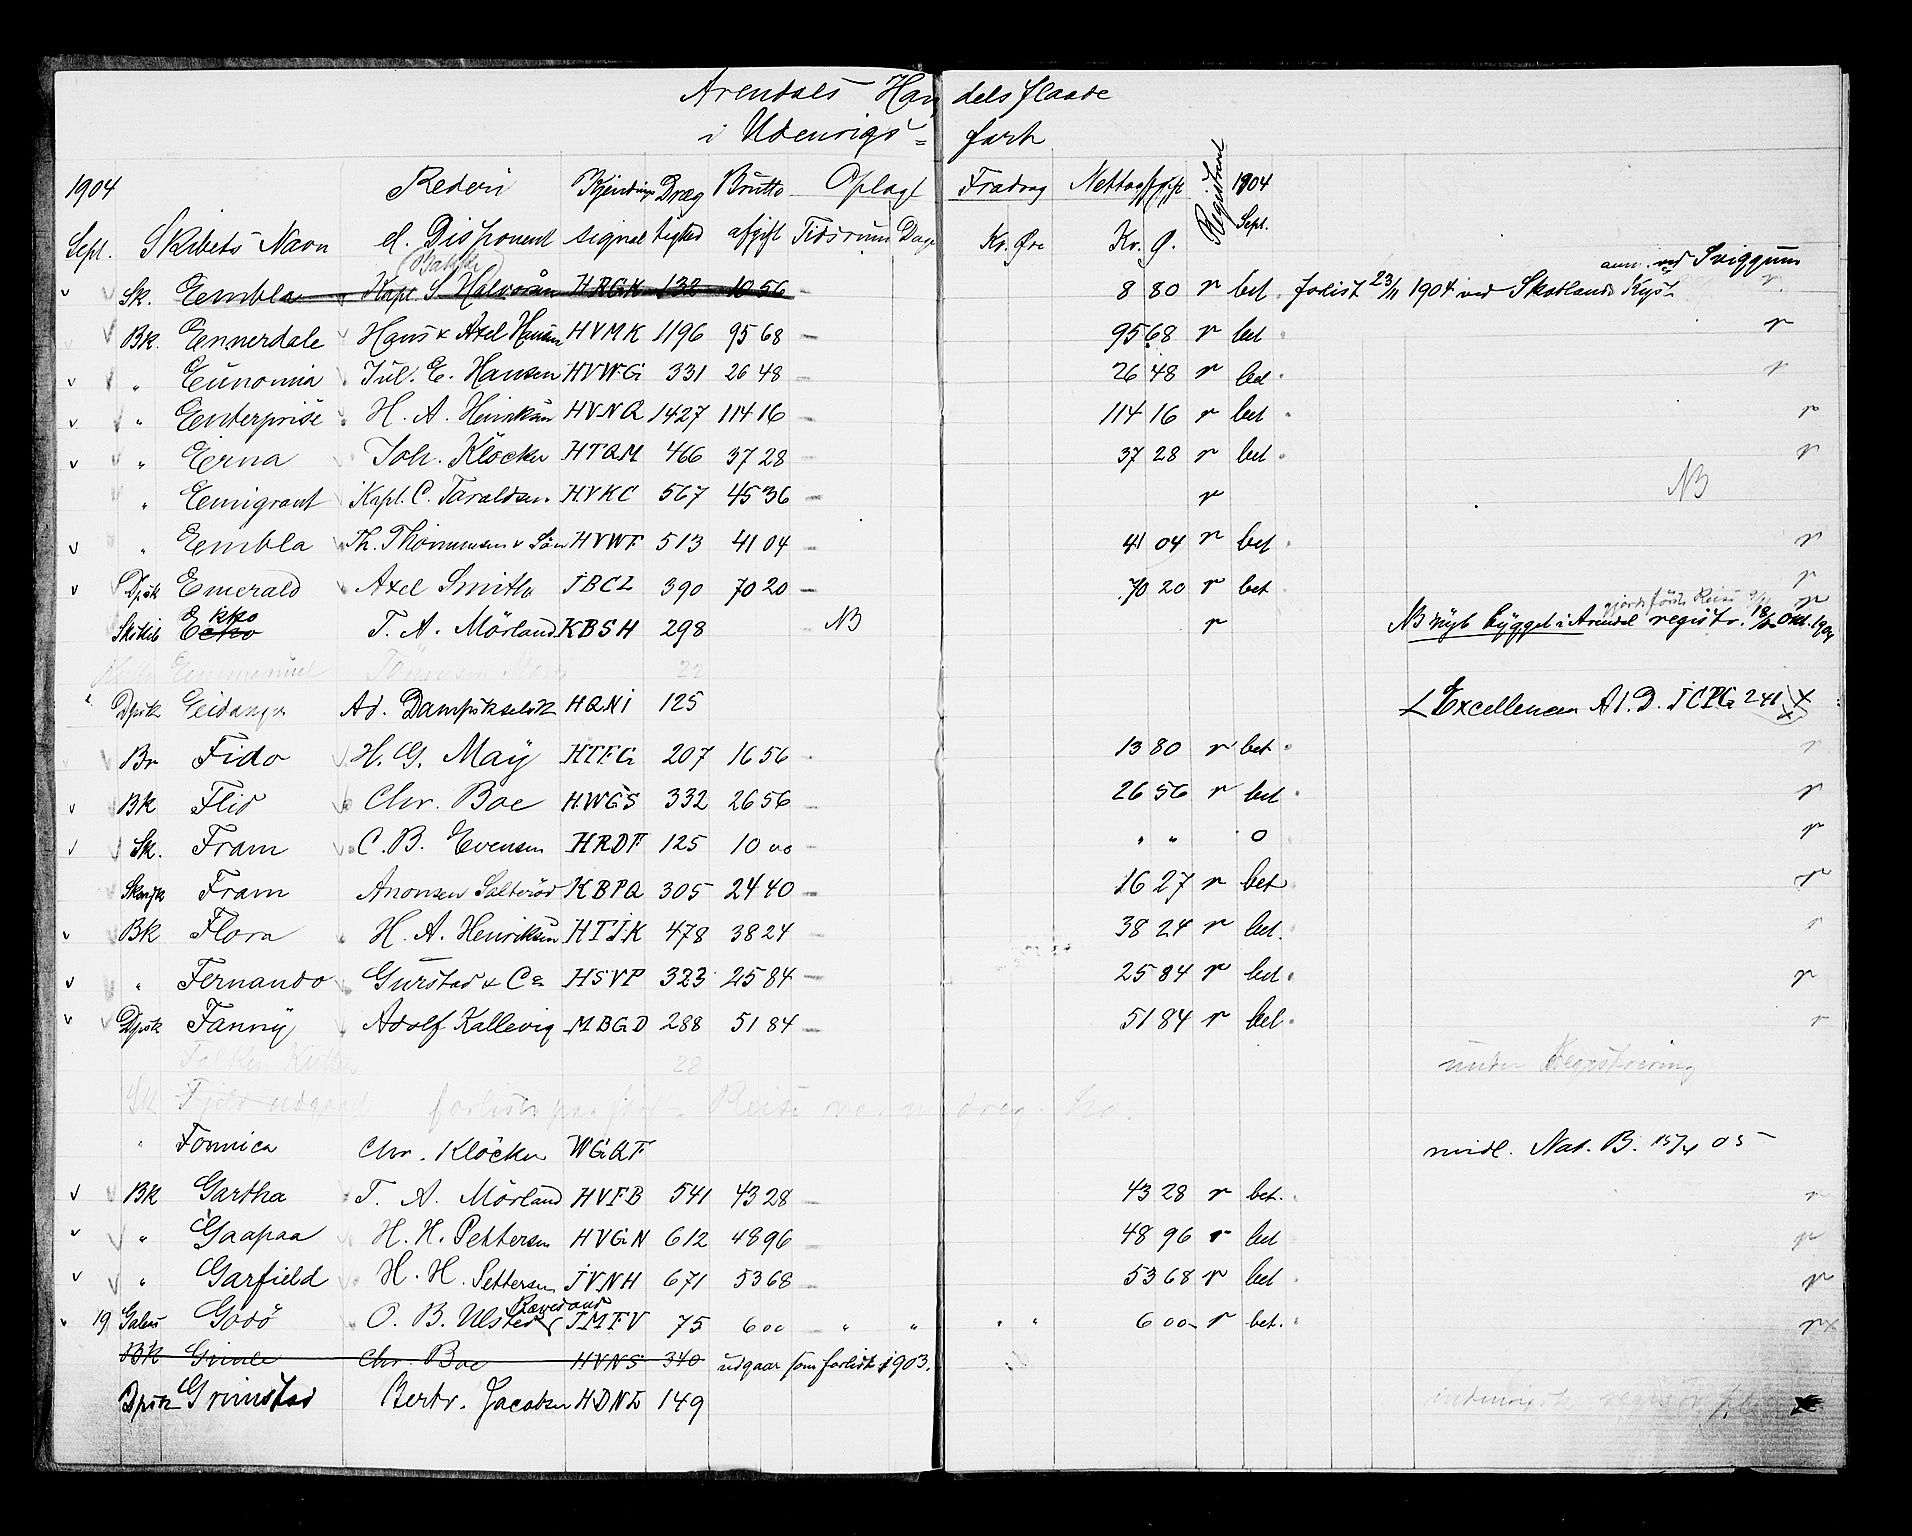 Arendals Handelsflaade
i Udenrigs=fart
1904 Rederi Kjendings Dræg Brutto Oplagt Fradrag Nettoafgift Registreret 1904
Sept. Skibets Navn el. Disponent signal tighed afgift Tidsrum Dage Kr. Øre Kr. Ø. Sept.
anm. ved Sviggum
v Sk. Embla Kapt. S Halvorsen HRGK 132 10 56 8 80 r bet. forlist 23/11 1904 ved Skotlands Kyst r
Bk. Ennerdale Hans & Axel Hansen HVMK 1196 95 68 — 95 68 r bet r
v " Eunomia Jul. E. Hansen HVWG 331 26 48 — 26 48 r bet. r
v " Enterprise H. A. Henriksen HVNQ 1427 114 16 — 114 16 r bet r
v " Erna Joh. Klöcker HTQM 466 37 28 — 37 28 r bet r
" Emigrant Kapt. C. Taraldsen HVKC 567 45 36 — r NB
v " Embla Th. Thommesen & Søn HVWF 513 41 04 — 41 04 r bet r
v Dpsk Emerald Axel Smith JBCL 390 70 20 — 70 20 r bet r
Ekko
Echo T. A. Mörland KBSH 298 NB r NB nyb bygget i Arendal registr. Okt. 1904
gjorde første Reise
Emmanuel 22
" Dpsk Eidanger Ad. Dampskselsk HQNJ 125 Excellencen A 1. D. JCPG 241
Br Fido H. G. May HTFG 207 16 56 13 80 r bet r
v Bk Flid Chr. Boe HWGS 332 26 56 — 26 56 r bet r
v Sk. Fram C. B. Evensen HRDF 125 10 00 " " o r
Fram Anonsen Salteröd KBPQ 305 24 40 — 16 27 r bet r
v Bk Flora H. A. Henriksen HTJK 478 38 24 — 38 24 r bet. r
v " Fernando Gurstad & Co HSVP 323 25 84 — 25 84 r bet r
v Dpsk Fanny Adolf Kallevig MBGD 288 51 84 — 51 84 r bet r
Falken Kutter 28 under Registrering
Sk Fjeld udgaaet forlist paa første Reise
" Formica Chr. Klöcker WGQF midl. Nat. B. 15/4 05
v Bk Gartha T. A. Mörland HVFB 541 43 28 — 43 28 r bet. r
v " Gaapaa H. H. Pettersen HVGN 612 48 96 48 96 r bet r
v " Garfield H. H. Pettersen JVNH 671 53 68 53 68 r bet r
v 19 Galeas Godö O. B. Ulsted JMFV 75 6 00 — " " " " 6 00 r bet. r
Bk Gimle Chr. Boe HVNS 340 udgaar som forlist 1903.
Dpsk Grimstad Bertr. Jacobsen HDNL 149 indenrigsk